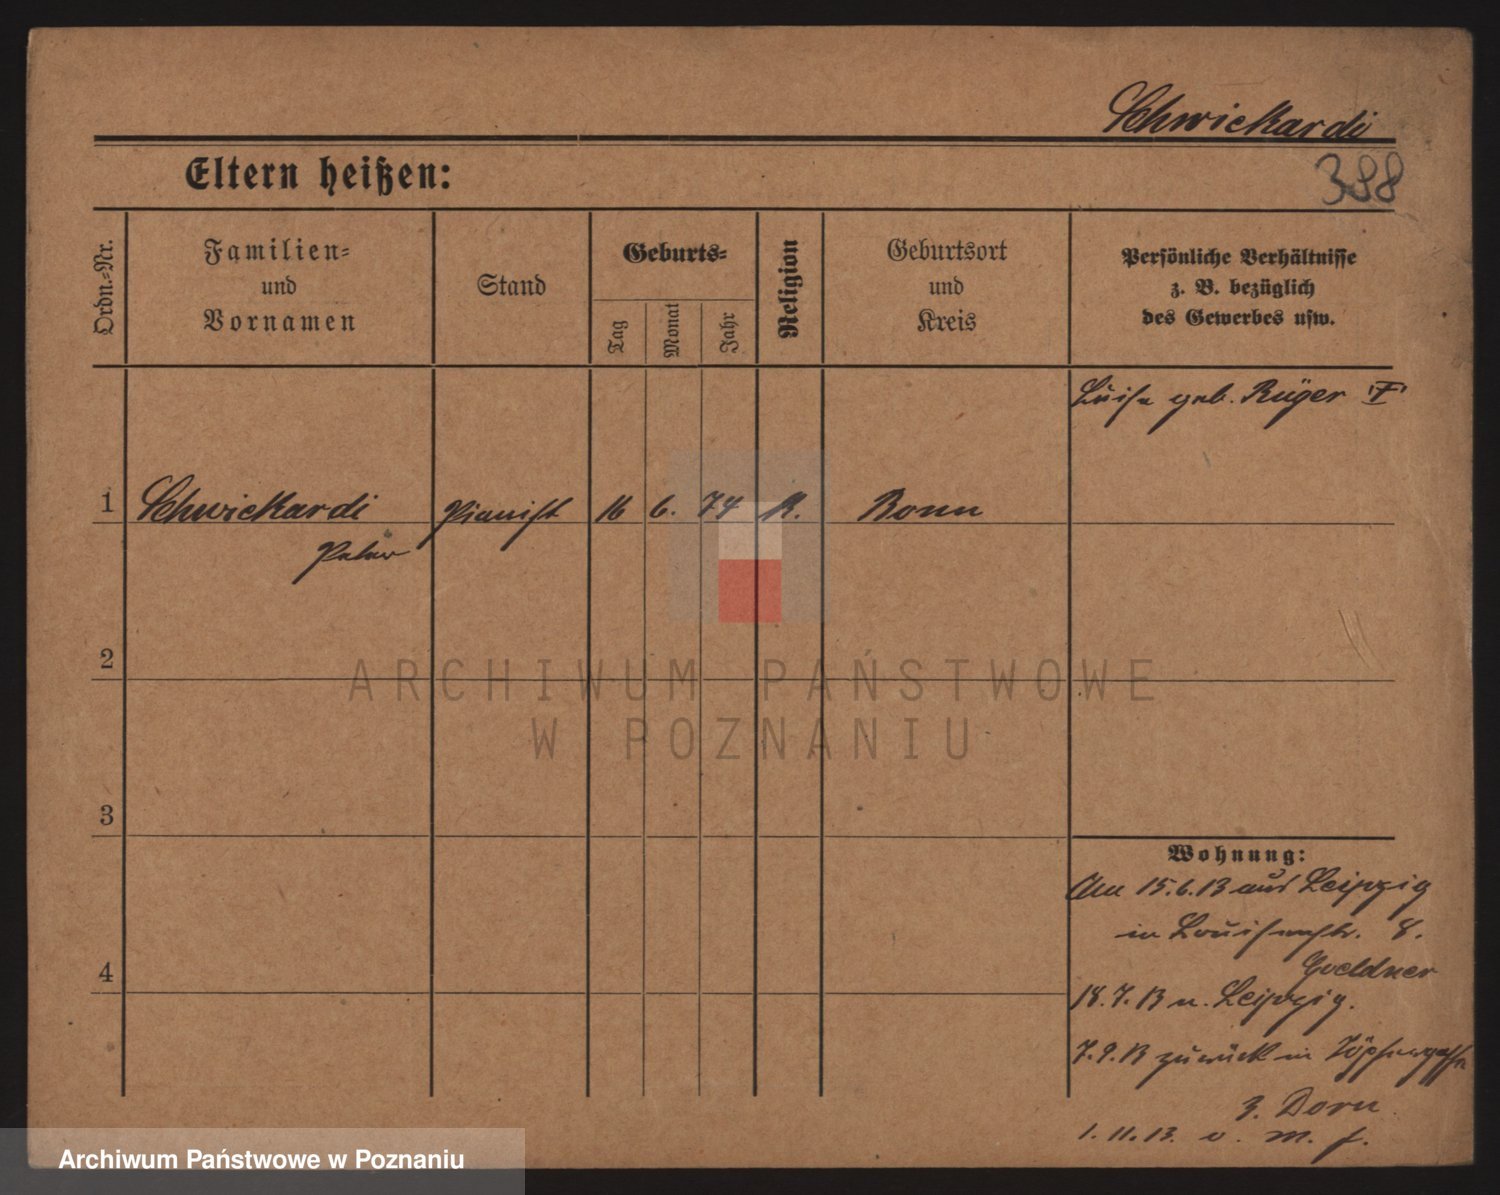 Schwickardi
398
Eltern heißen:
Ordn.-Nr.
Familien-
und
Vornamen
Stand
Geburts-
Tag
Monat
Jahr
Religion
Geburtsort
und
Kreis
Persönliche Verhältnisse
z. B. bezüglich
des Gewerbes usw.
Luise geb. Rüger
1 Schwickardi Pianist 16 6. 74 K. Bonn
Peter
2
3
4
ARCHIWUM PAŃSTWOWE
W POZNANIU
Wohnung:
Am 15.6.13 aus Leipzig
in Louisenstr. 8.
Goeldner
18.7.13 n. Leipzig.
7.9.13 zurück in Töpfergasse
3. Dorn
1.11.13. v. m. f.
Archiwum Państwowe w Poznaniu